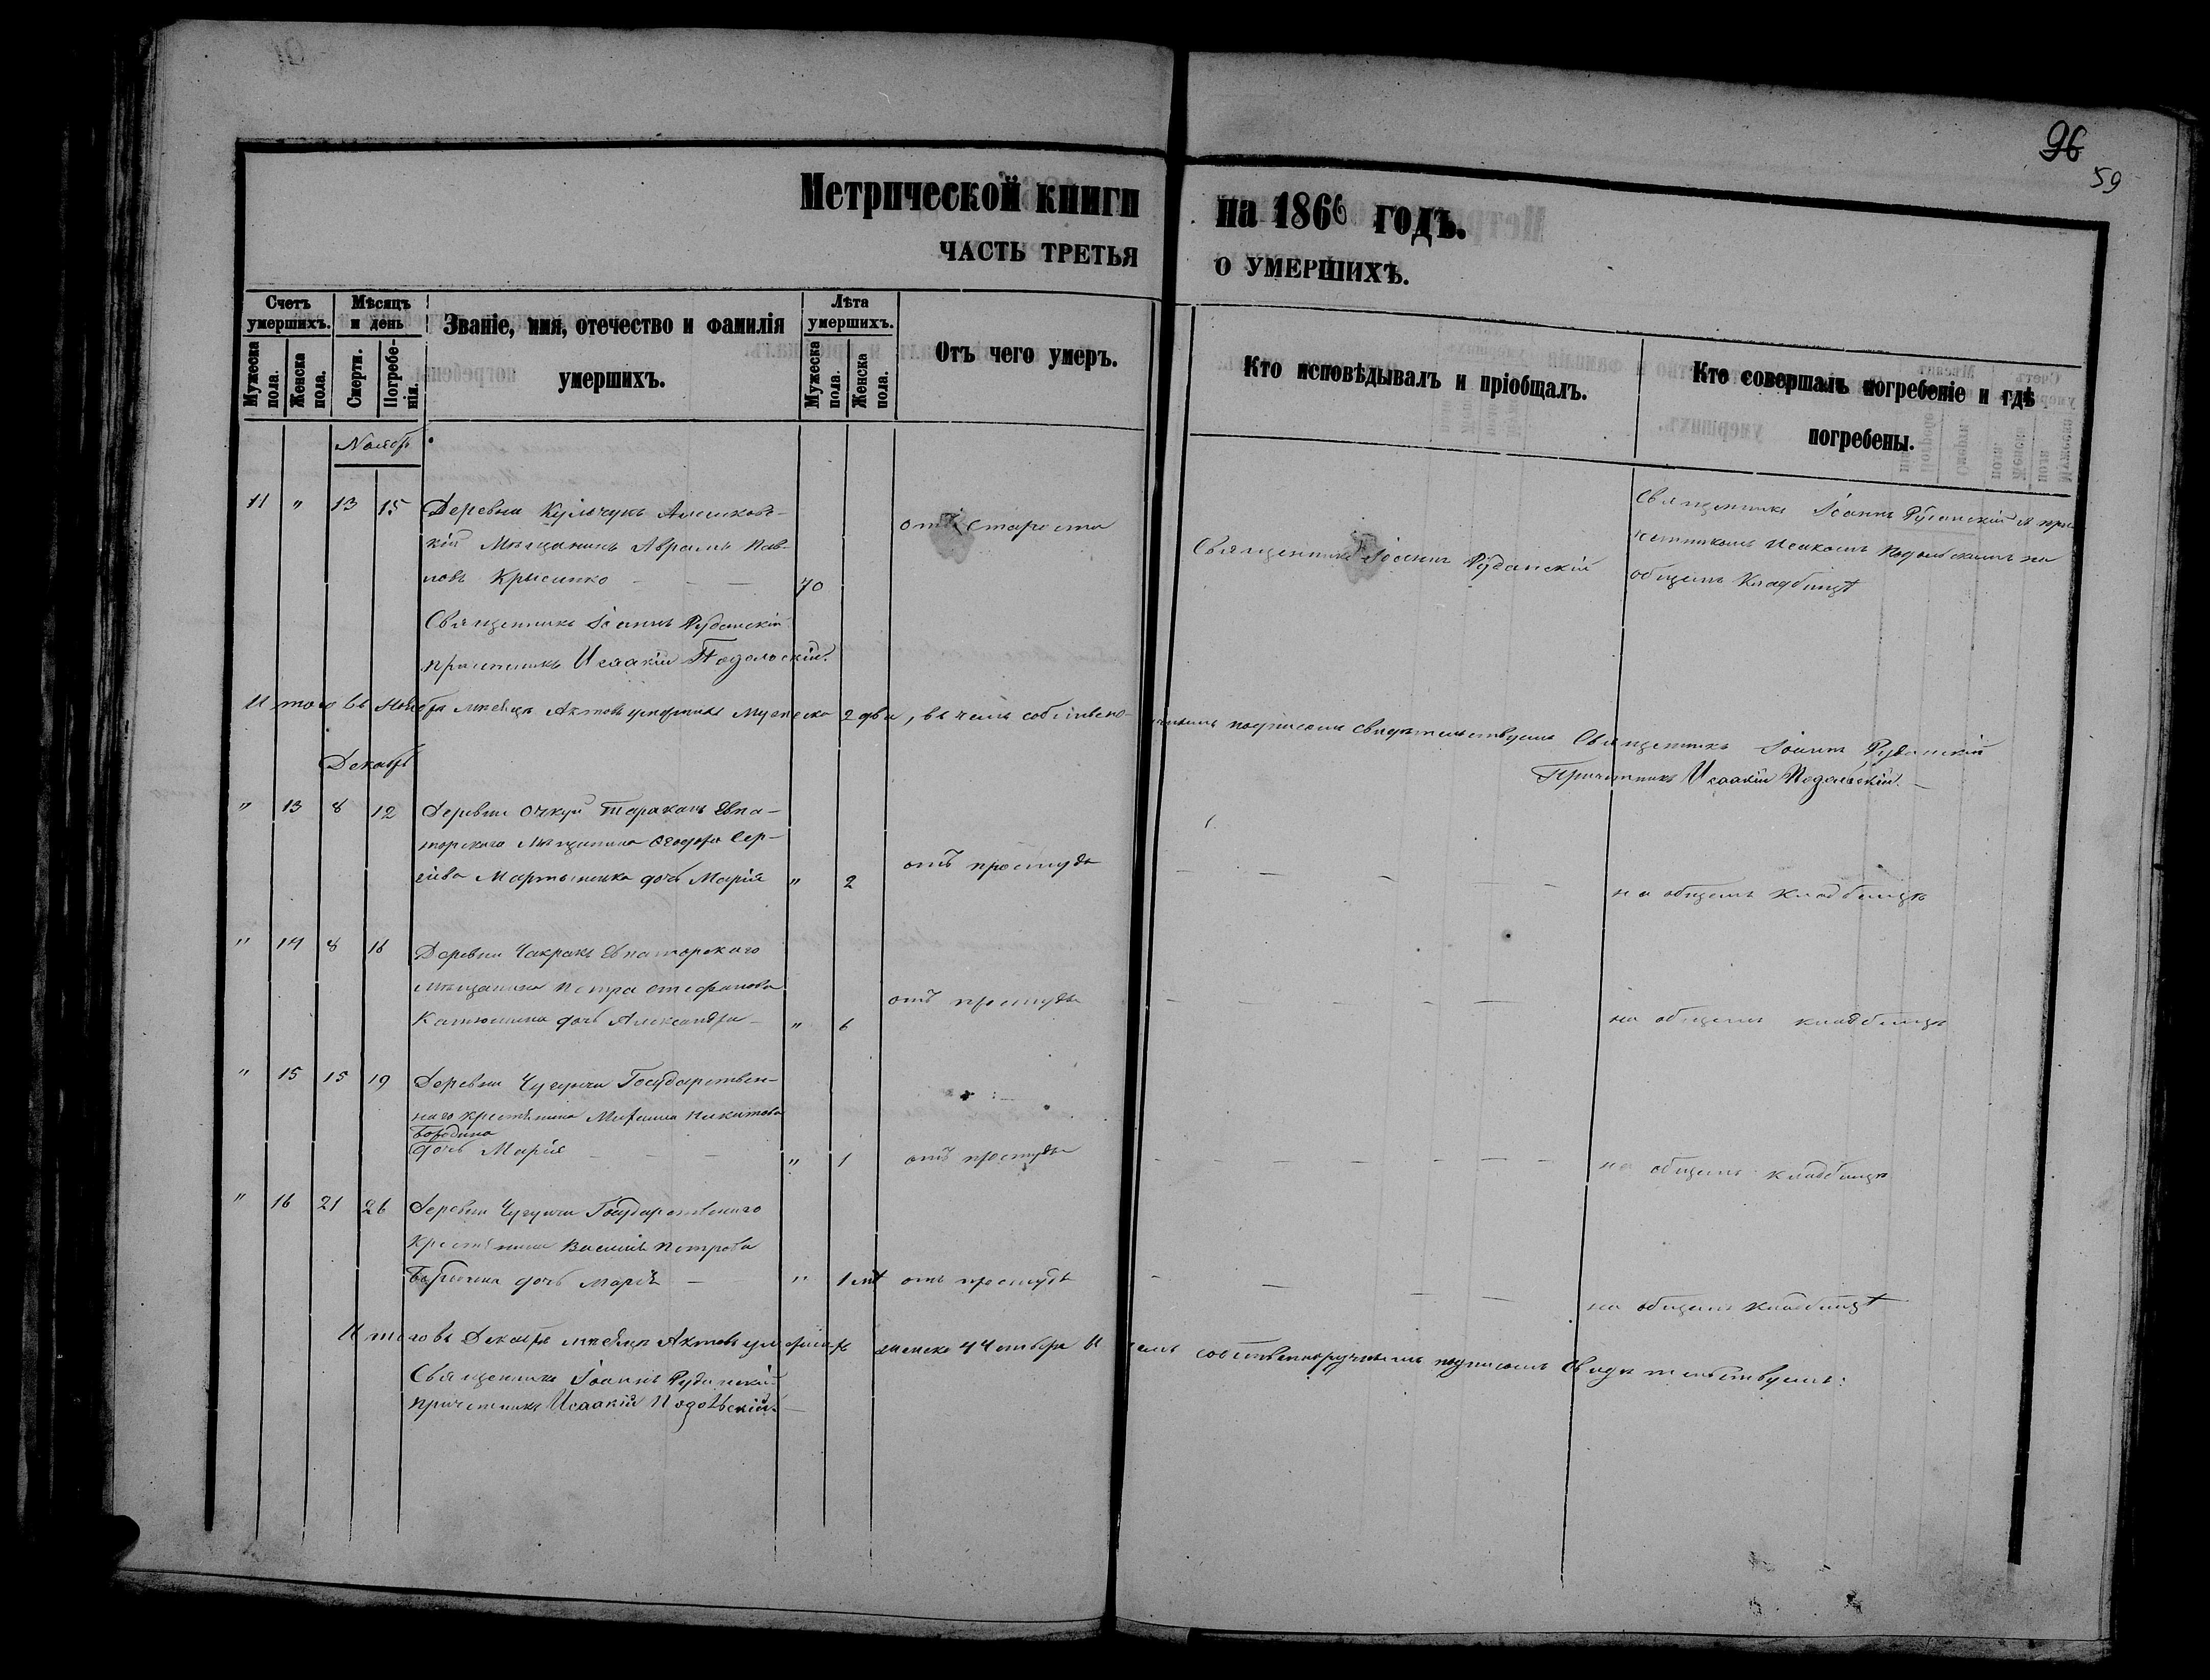 96
59
Метрической книги на 1866 годъ.
ЧАСТЬ ТРЕТЬЯ О УМЕРШИХЪ.
Счетъ умершихъ.
Мужеска пола.
Женска пола.
Мѣсяцъ и день
Смерти.
Погребенія.
Званіе, имя, отечество и фамилія умершихъ.
Лѣта умершихъ.
Мужеска пола.
Женска пола.
Отъ чего умеръ.
Кто исповѣдывалъ и пріобщалъ.
Кто совершалъ погребеніе и гдѣ погребены.
Ноябрь
11 " 13 15 Деревни Кульчукъ Алешков-
кій Мѣщанинъ Аврамъ Пав-
ловъ Крысенко 70
отъ Старости
Священникъ Іоаннъ Рубанскій
Священникъ Іоаннъ Рубанскій при-
четникомъ Исакомъ Подольскимъ на
общемъ Кладбищѣ
Священникъ Іоаннъ Рубанскій
причетникъ Исаакій Подольскій.
Итого въ Ноябрѣ мѣсяцѣ Актовъ умершихъ Мужеска 2 два, въ чемъ собственно- ручнымъ подписомъ свидѣтельствуемъ Священникъ Іоаннъ Рубанскій
Причетникъ Исаакій Подольскій.
Декабрь
" 13 8 12 Деревни Очкуй Тараканъ Евпа-
торскаго Мѣщанина Ѳеодора Сер-
гіева Мартыненка дочь Марія " 2
отъ простуды
на общемъ Кладбищѣ
" 14 8 16 Деревни Чакракъ Евпаторскаго
Мѣщанина Петра Стефанова
Катюшина дочь Александра " 6
отъ простуды
на общемъ кладбищѣ
" 15 15 19 Деревни Чугунчи Государствен-
наго крестьянина Михаила Никитова
Бородина
дочь Марія " 1
отъ простуды
на общемъ кладбищѣ
" 16 21 26 Деревни Чугунчи Государственнаго
Крестьянина Василія Петрова
дочь Марія " 1 отъ простуды
на общемъ Кладбищѣ
Итого въ Декабрѣ мѣсяцѣ Актовъ умершихъ женска 4 Четыре собственноручнымъ подписомъ Свидѣтельствуемъ:
Священникъ Іоаннъ Рубанскій
причетникъ Исаакій Подольскій.